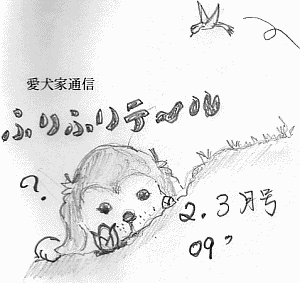 愛犬家通信
ふりふりテール
?
2.3月号
09'